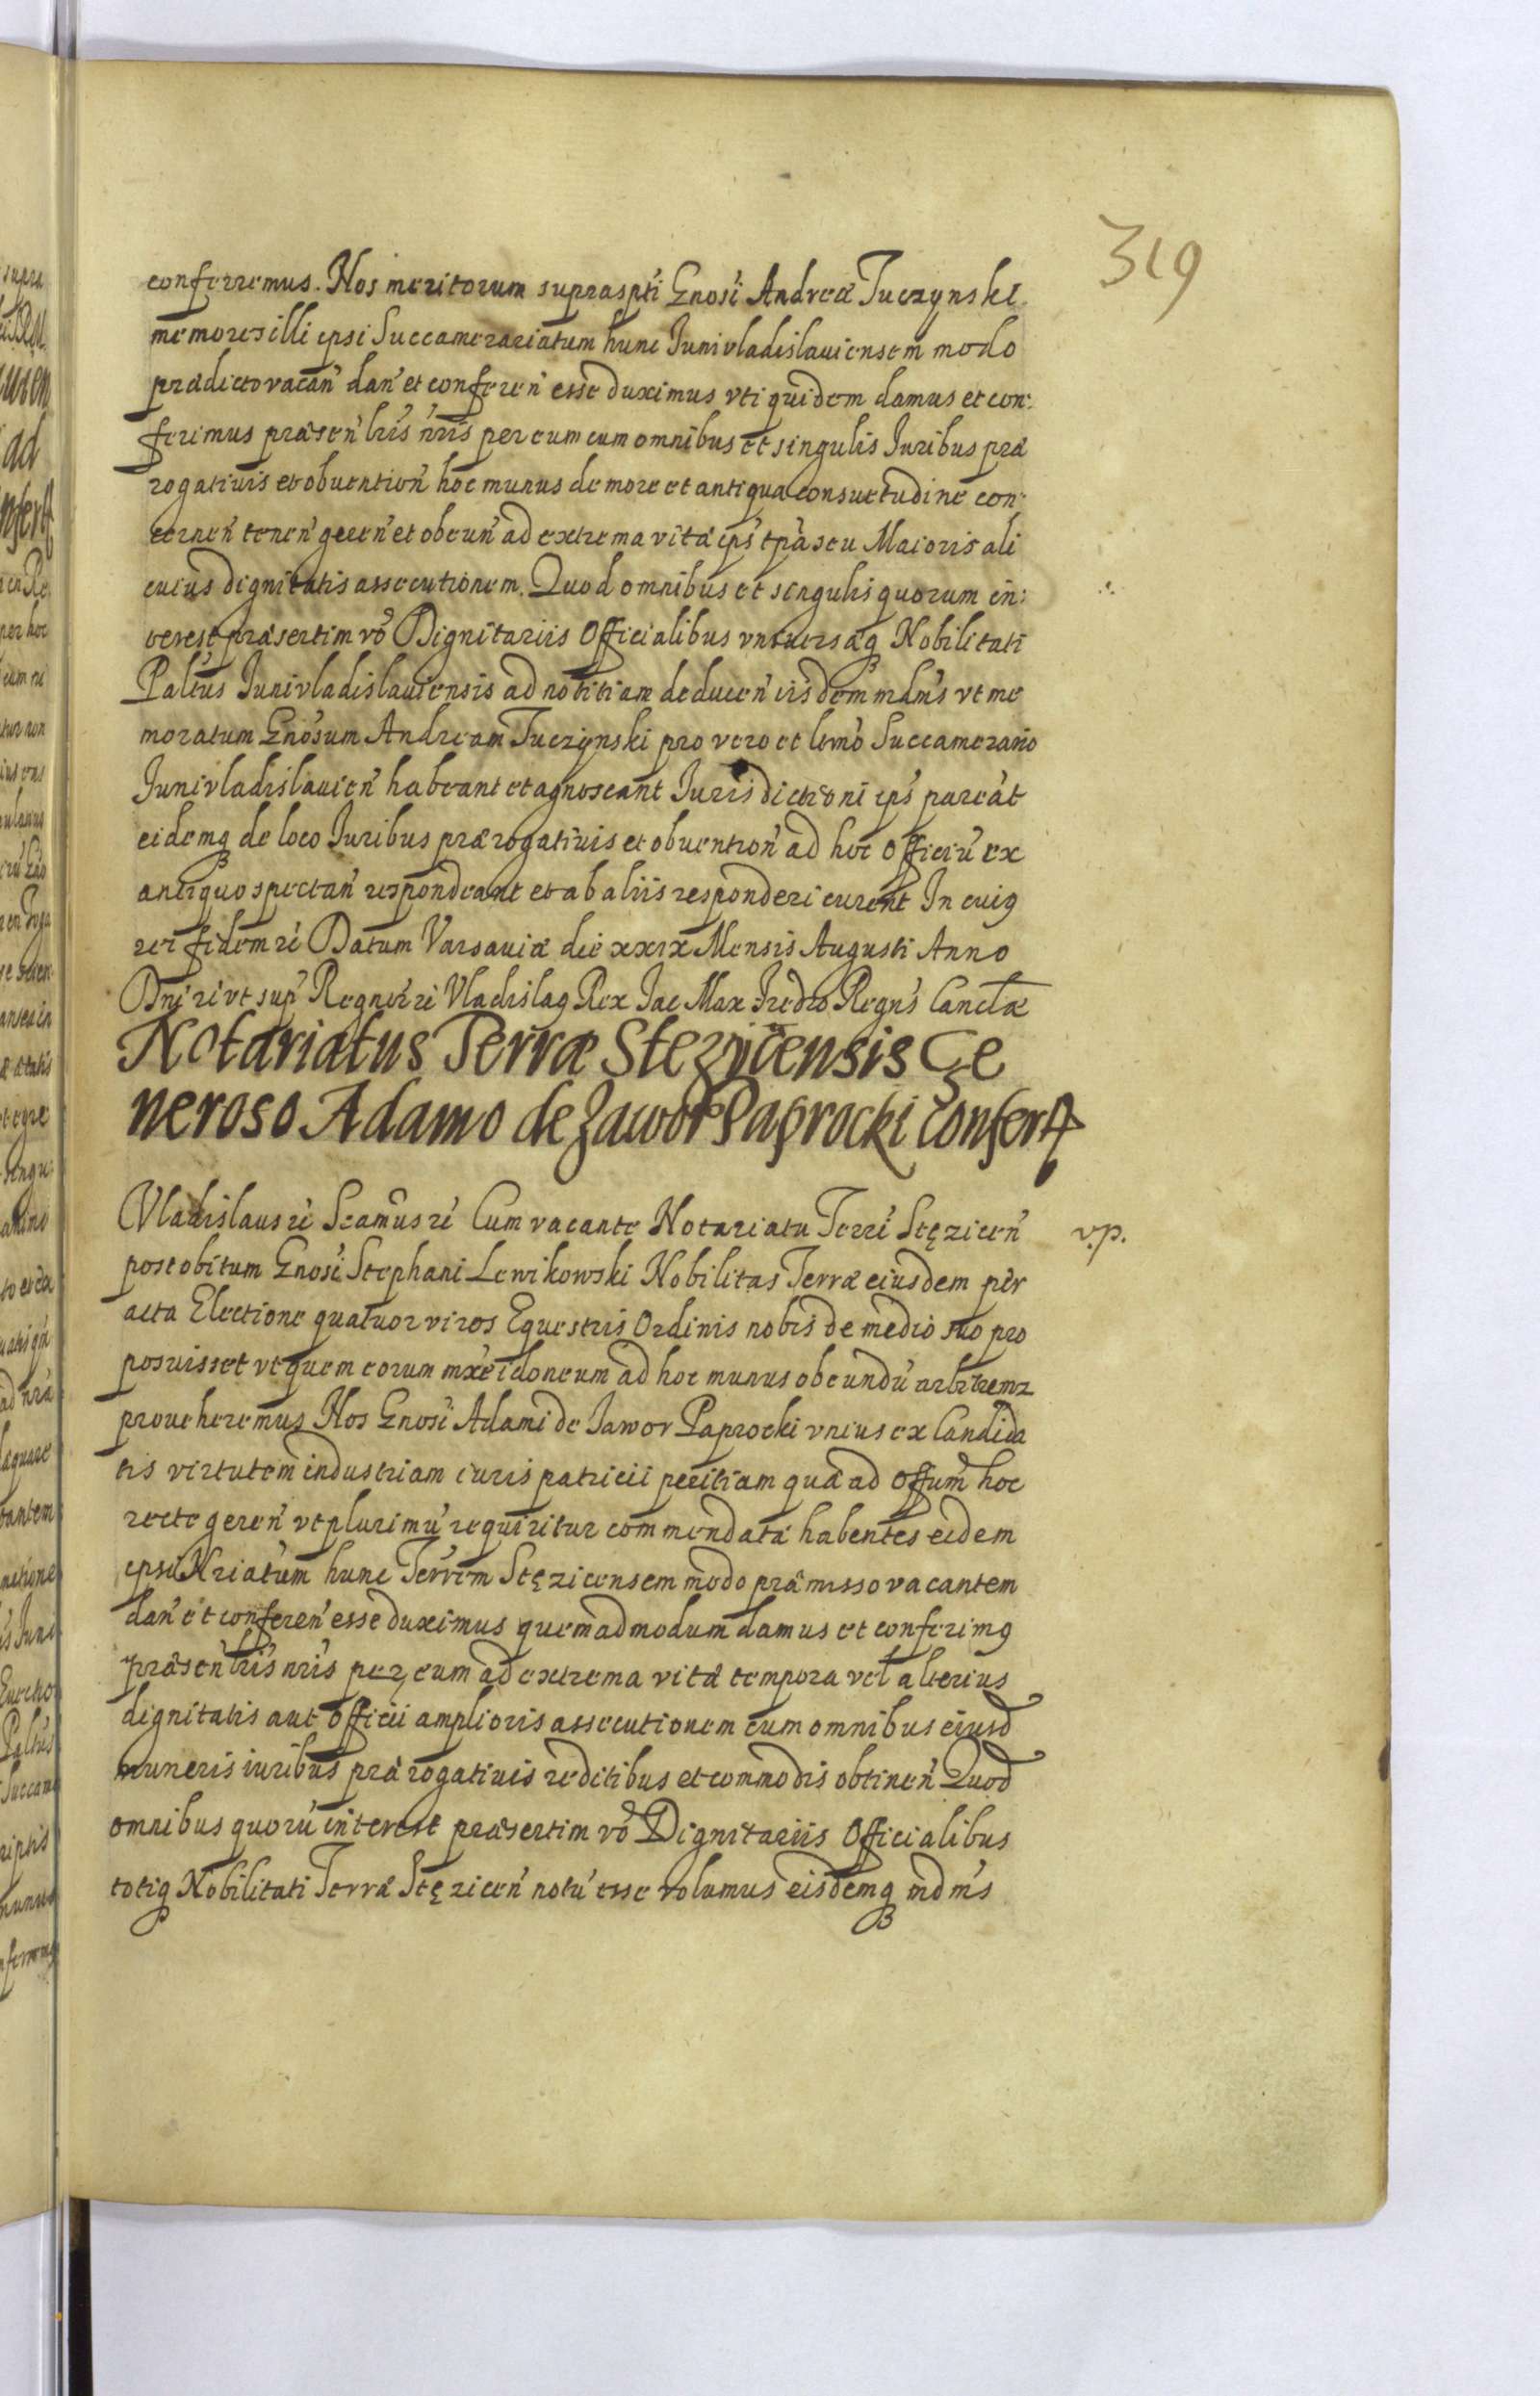 319
conferremus. Nos meritorum supraspti Gnosi Andreæ Tuczynski
memores illi ipsi Succamerariatum hunc Junivladislauiensem modo
prædicto vacan̄ dan̄ et conferen̄ esse duximus vti quidem damus et con:
ferimus præsen̄ lrīs nrīs per eum cum omnibus et singulis Juribus præ
rogatiuis et obuention̄ hoc munus de more et antiqua consuetudine con:
cernen̄ tenen̄ geren̄ et obeun̄ ad extrema vitæ ips̄ tpā seu Maioris ali
cuius dignitatis assecutionem. Quod omnibus et singulis quorum in:
terest præsertim vō Dignitariis Officialibus vniuersæq Nobilitati
Paltūs Junivladislauiensis ad notitiam deducen̄ iisdem mdms̄ vt me
moratum Gnosum Andream Tuczynski pro vero et lēmo Succamerario
Junivladislauien̄ habeant et agnoscant Jurisdictioni ips̄ pareāt
eidemq de loco Juribus prærogatiuis et obuention̄ ad hoc officiū ex
antiquo spectan̄ respondeant et ab aliis responderi curent In cuiq
rei fidem ꝛc̄ Datum Varsauiæ die xxix Mensis Augusti Anno
Dnī ꝛc̄ vt sup̄ Regnor̄ ꝛc̄ Vladislaq Rex Jac Max Fredro Regn̄s Cancel̄æ
Notariatus Terræ Stezycensis Ge
neroso Adamo de Jawor Paprocki Confert̄
Vladislaus ꝛc̄ Seamūs ꝛc̄ Cum vacante Notariatu Terrē Stęzicen̄ v.p.
post obitum Gnosi Stephani Lewikowski Nobilitas Terræ eiusdem per
acta Electione quatuor viros Equestris Ordinis nobis de medio suo pro
posuisset vt quem eorum mxē idoneum ad hoc munus obeundū arbitremꝛ
proueheremus Nos Gnosi Adami de Jawor Paprocki vnius ex Candida
tis virtutem industriam iuris patricii peritiam quæ ad Offum̄ hoc
recte geren̄ vt plurimū requiritur commendatā habentes eidem
ipsi Nriatum hunc Terrēm Stęzicensem modo præmisso vacantem
dan̄ et conferen̄ esse duximus quemadmodum damus et conferimq
præsen̄ lrīs nrīs per eum ad extrema vitæ tempora vel alterius
dignitatis aut officii amplioris assecutionem cum omnibus eiusd
muneris iuribus prærogatiuis reditibus et commodis obtinen̄ Quod
omnibus quorū interest præsertim vō Dignitariis Officialibus
totiq Nobilitati Terræ Stęzicen̄ notū esse volumus eisdemq mdms̄